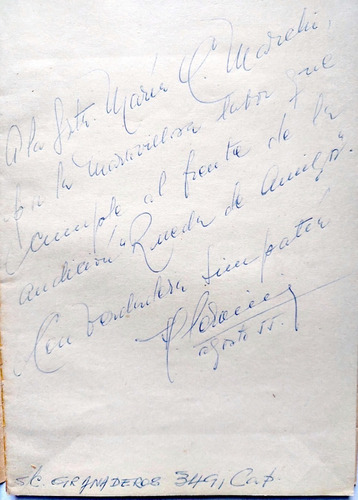 A la Srta. María C. Marchi,
por la maravillosa labor que
cumple al frente de la
audición "Rueda de Amigos".
Con verdadera simpatía
agosto 55.
S/C. GRANADEROS 349, Cap.